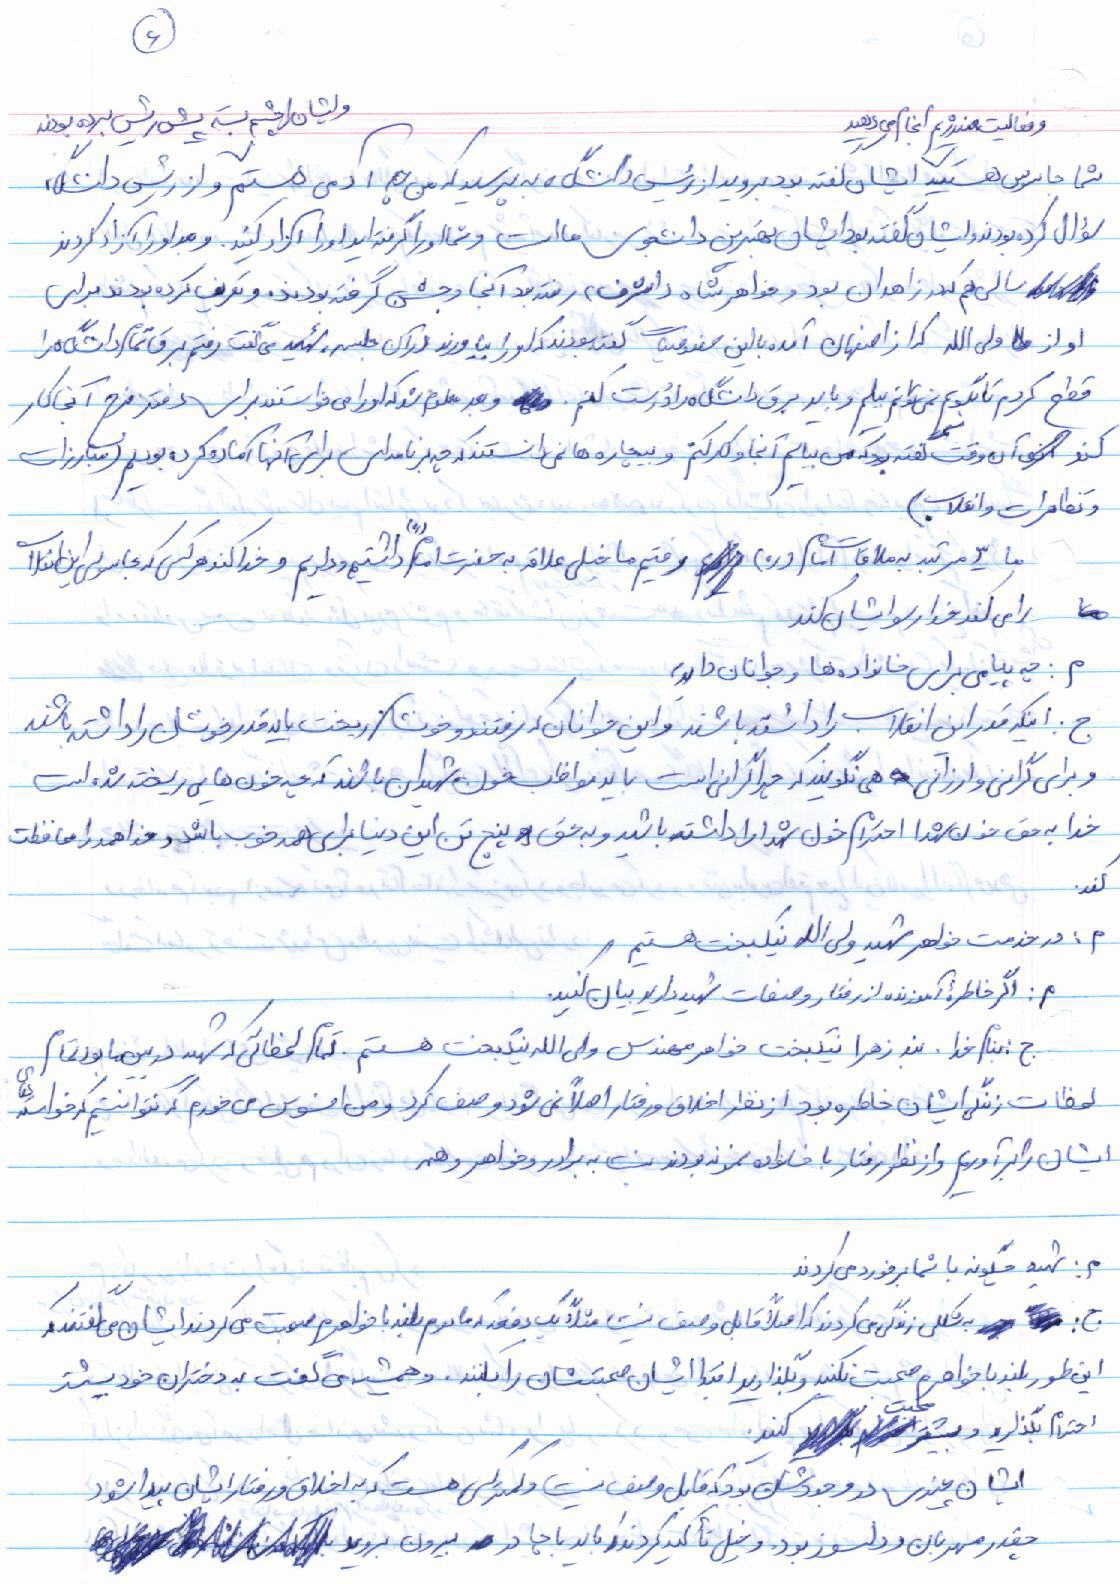 ۶
و فعالیت ضد رژیم انجام می‌دهید
و ایشان را چشم بسته پیش رئیس برده بودند
شما جاسوس هستید ایشان گفته بود بروید از رئیس دانشگاه بپرسید که من چه آدمی هستم و از رئیس دانشگاه
سؤال کرده بودند ایشان گفته بود ایشان بهترین دانشجوی ما است و شما او را گرفته‌اید او را آزاد کنید. و بعد او را آزاد کردند
سالی هم که در زاهدان بود و خواهر شاه (اشرف) رفته بود آنجا و جشن گرفته بودند. و تعریف کرده بودند برای
او از ولی الله که از اصفهان آمده با این خصوصیت گفته بودند که او را بیاورند در آن جلسه، شهید می‌گفت رفتم برق تمام دانشگاه را
قطع کردم تا بگویم نمی‌توانم بیایم و باید برق دانشگاه را درست کنم. و بعد معلوم شد که او را می‌خواستند برای دفتر فرح آنجا کار
کند آن وقت گفته بود که من بیایم آنجا و کار کنم و بیچاره‌ها نمی‌دانستند که چه برنامه‌ای برای آنها آماده کرده بودیم (مبارزات
و تظاهرات و انقلاب)
ما ۳ مرتبه به ملاقات امام (ره) رفتیم ما خیلی علاقه به حضرت امام (ره) داشتیم و داریم و خدا کند هر کسی که جاسوسی این انقلاب
را می‌کند خدا رسوایشان کند
م: چه پیامی برای خانواده‌ها و جوانان دارید
ج: اینکه قدر این انقلاب را داشته باشند و این جوانان که رفتند و خونشان ریخت باید قدر خونشان را داشته باشند
و برای گرانی و ارزانی هی نگویند که چرا گرانی است باید مواظب خون شهیدان باشند که چه خون‌هایی ریخته شده است
خدا به حق خون شهدا احترام خون شهدا را داشته باشید و به حق پنج تن این دنیا برای همه خوب باشد و خدا همه را محافظت
کند.
م: در خدمت خواهر شهید ولی الله نیکبخت هستیم
م: اگر خاطرهٔ آموزنده از رفتار و صفات شهید دارید بیان کنید.
ج: بنام خدا. بنده زهرا نیکبخت خواهر مهندس ولی الله نیکبخت هستم. تمام لحظاتی که شهید در بین ما بود تمام
لحظات زندگی ایشان خاطره بود از نظر اخلاق و رفتار اصلاً نمی‌شود وصف کرد و من افسوس می‌خورم که نتوانستیم که خواسته‌های
ایشان را برآوریم و از نظر رفتار با خانواده نمونه بودند نسبت به برادر و خواهر و همه
م: شهید چگونه با شما برخورد می‌کردند
ج: به شکلی زندگی می‌کردند که اصلاً قابل وصف نیست مثلاً یک دفعه که مادرم بلند با خواهرم صحبت می‌کردند ایشان می‌گفتند که
این طور بلند با خواهرم صحبت نکنید و بگذارید ابتدا ایشان صحبتشان را بکنند. و همیشه می‌گفت به دختران خود بیشتر
احترام بگذارید و بیشتر محبت کنید.
ایشان چیزی در وجودشان بود که قابل وصف نیست و کمتر کسی هست که به اخلاق و رفتار ایشان پیدا شود
چقدر مهربان و دلسوز بود. و خیلی تأکید کردند که باید با چادر بیرون بروید